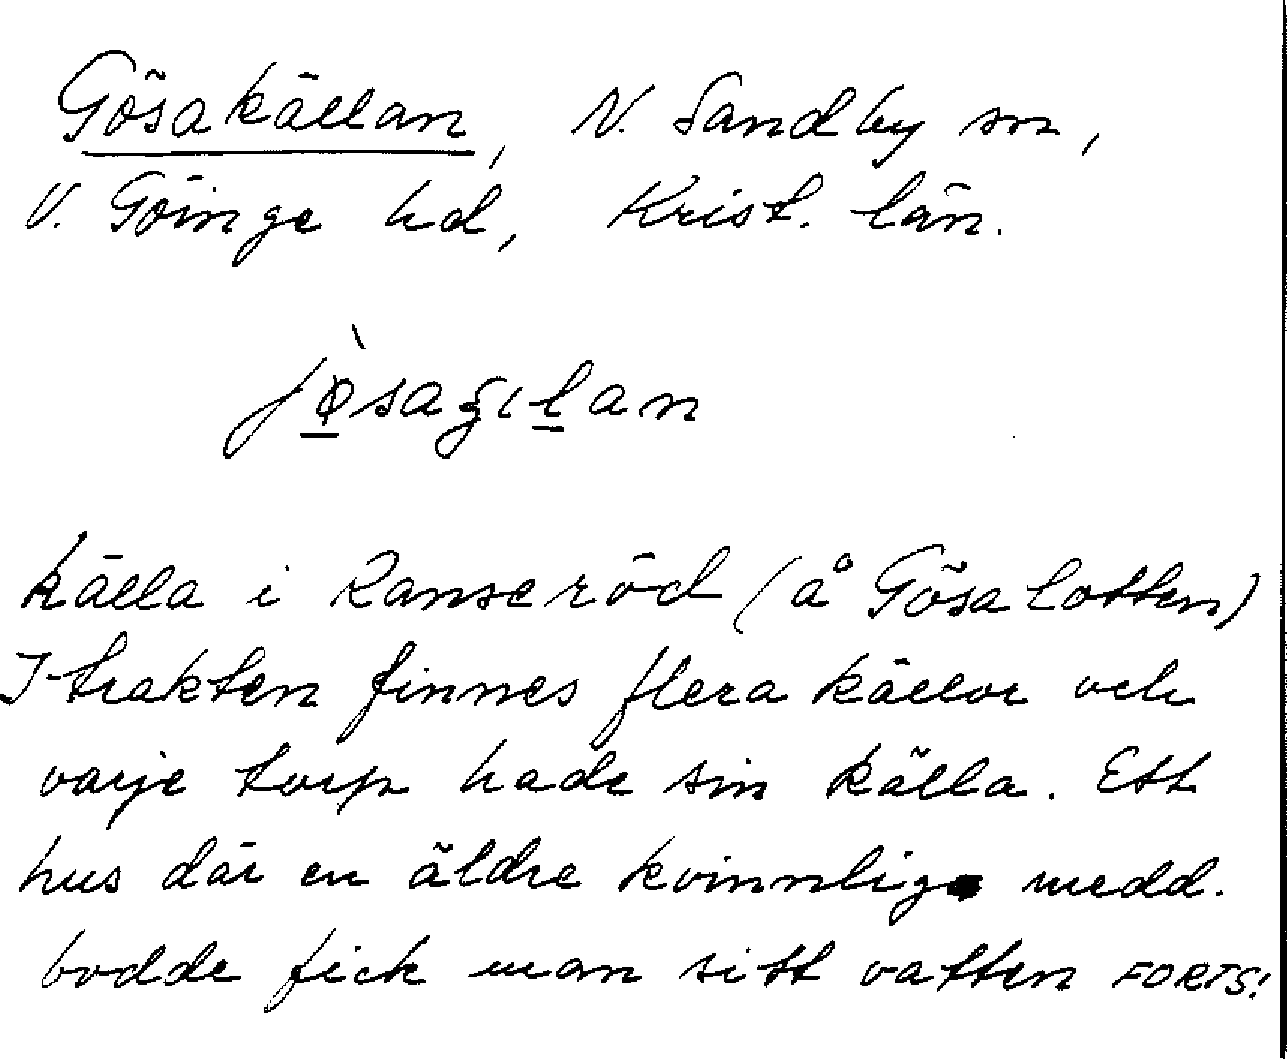 Gösakällan, N. Sandby sn,
V. Göinge hd, Krist. län.
jø̀saʒιlan
källa i Ranseröd (å Gösalotten)
I trakten finnes flera källor och
varje torp hade sin källa. Ett
hus där en äldre kvinnlig medd.
bodde fick man sitt vatten FORTS!